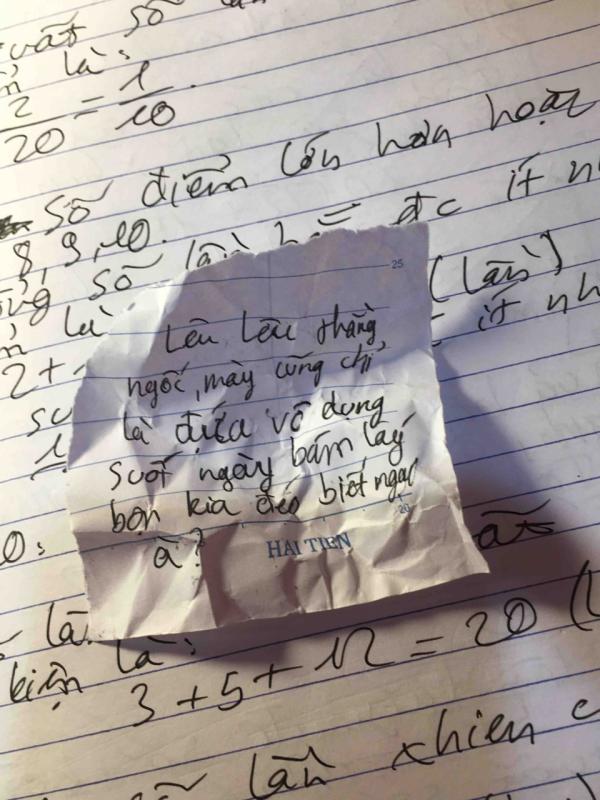 vất số
là:
2/20 = 1/10.
số điểm lớn hơn hoặc
8, 9, 10.
số lần đc ít
là (lần)
2+ ít nh
25
Lêu lêu thằng
ngốc, mày cũng chỉ
là đứa vô dụng
suốt ngày bám lấy
bọn kia đéo biết ngại
à?
20
HẢI TIẾN
là
kiện là:
3 + 5 + 12 = 20 (
lần xhien